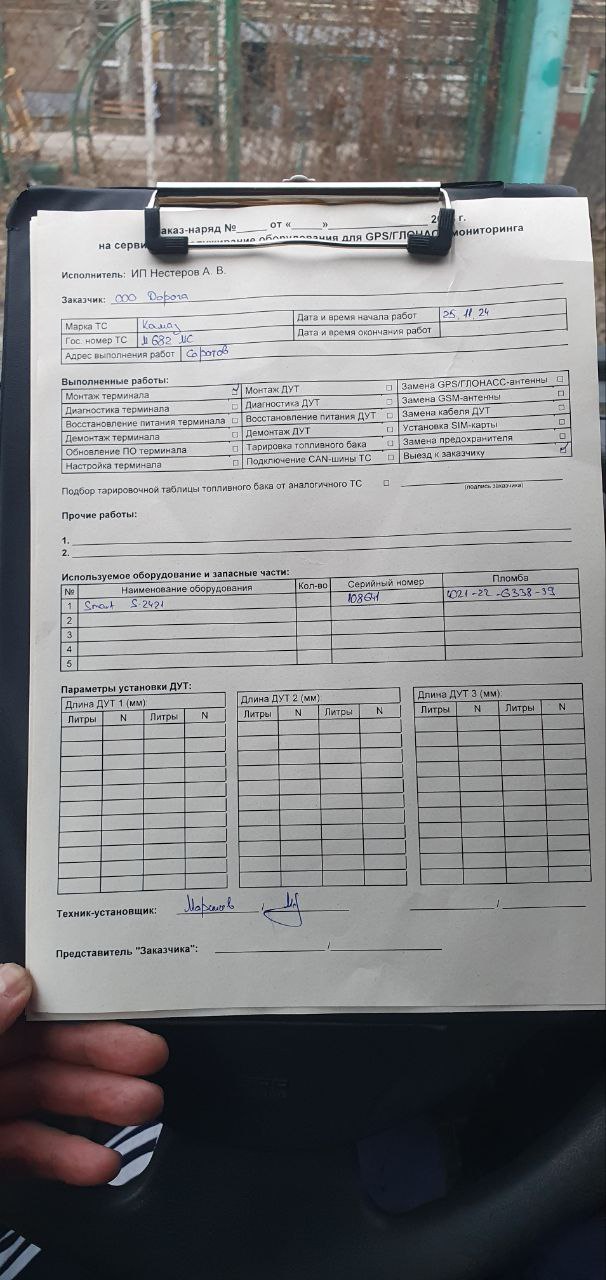 аказ-наряд №_____ от «_____»_______________ 20 г.
на серви служивание оборудования для GPS/ГЛОНАСС мониторинга
Исполнитель: ИП Нестеров А. В.
Заказчик: ООО Дорога
Марка ТС Камаз Дата и время начала работ 25.11.24
Гос. номер ТС М682МС Дата и время окончания работ
Адрес выполнения работ Саратов
Выполненные работы:
Монтаж терминала ☑ Монтаж ДУТ ☐ Замена GPS/ГЛОНАСС-антенны ☐
Диагностика терминала ☐ Диагностика ДУТ ☐ Замена GSM-антенны ☐
Восстановление питания терминала ☐ Восстановление питания ДУТ ☐ Замена кабеля ДУТ ☐
Демонтаж терминала ☐ Демонтаж ДУТ ☐ Установка SIM-карты ☐
Обновление ПО терминала ☐ Тарировка топливного бака ☐ Замена предохранителя ☐
Настройка терминала ☐ Подключение CAN-шины ТС ☐ Выезд к заказчику ☑
Подбор тарировочной таблицы топливного бака от аналогичного ТС ☐
(подпись заказчика)
Прочие работы:
1.
2.
Используемое оборудование и запасные части:
№ Наименование оборудования Кол-во Серийный номер Пломба
1 Smart S-2421 108641
2
3
4
5
Параметры установки ДУТ:
Длина ДУТ 1 (мм): Длина ДУТ 2 (мм): Длина ДУТ 3 (мм):
Литры N Литры N Литры N Литры N Литры N Литры N
Техник-установщик: / /
Представитель "Заказчика": /